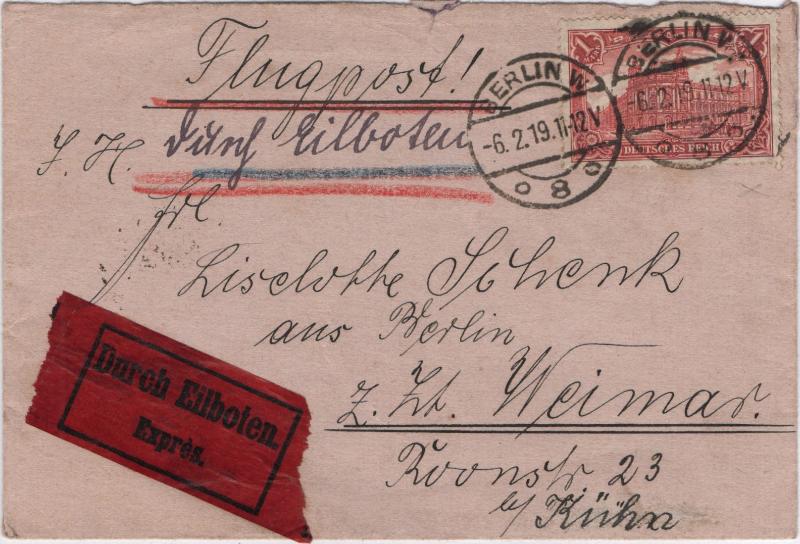 Flugpost!
durch Eilboten
Frl.
Liselotte Schenk
aus Berlin
z. Zt. Weimar.
Roonstr. 23
b/ Kühn
Durch Eilboten.
Exprès.
BERLIN W
-6.2.19.11-12V
8
1
DEUTSCHES REICH
BERLIN W
-6.2.19.11-12V